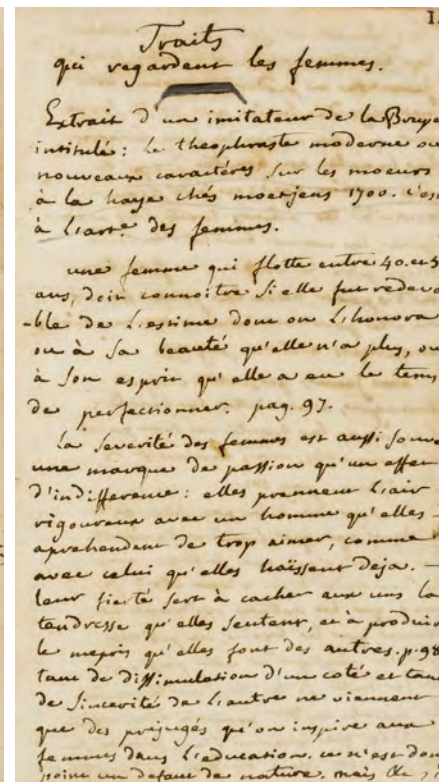 1.
Traits
qui regardent les femmes.
Extrait d'un imitateur de la Bruye
intitulé: le theophraste moderne ou
nouveaux caractéres sur les moeurs
à la haye chés moetjens 1700. c'est
à l'art.e des femmes.
une femme qui flotte entre 40. et 5
ans, doit connoitre si elle fut redeva
-ble de l'estime dont on l'honora
ou à sa beauté qu'elle n'a plus, ou
à son esprit qu'elle a eu le tems
de perfectionner. pag. 97.
La severité des femmes est aussi souve
une marque de passion qu'un effet
d'indifference: elles prennent l'air
rigoureux avec un homme qu'elles -
aprehendent de trop aimer, comme
avec celui qu'elles haïssent deja. -
leur fierté sert à cacher aux uns la
tendresse qu'elles sentent, et à produire
le mepris qu'elles font des autres. p. 98
tant de dissimulation d'un coté et tant
de sincerité de l'autre ne viennent
que des prejugés qu'on inspire aux
femmes dans l'education. ce n'est don
point un defaut de nature. mais